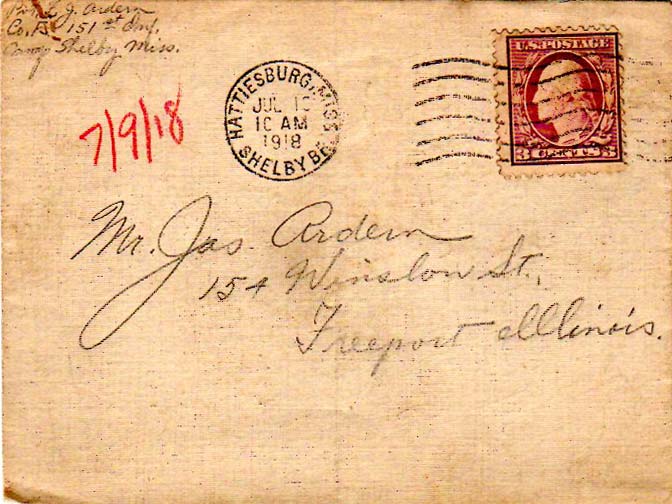 Pvt. L. J. Ardern
Co. B 151st Inf.
Camp Shelby Miss.
7/9/18
HATTIESBURG, MISS
JUL 10
10 AM
1918
SHELBY BR
U.S. POSTAGE
3 CENTS 3
Mr. Jas. Ardern
154 Winslow St.,
Freeport Illinois.